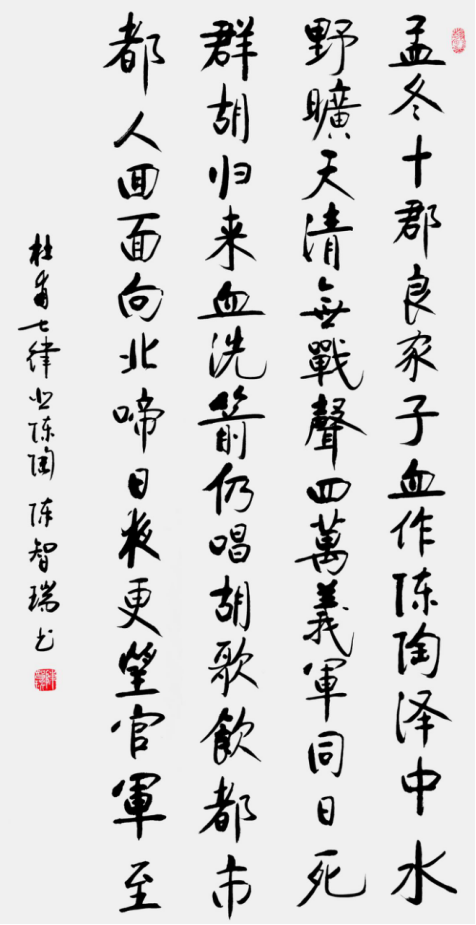 孟冬十郡良家子血作陈陶泽中水
野曠天清無戰聲四萬義軍同日死
群胡归来血洗箭仍唱胡歌飲都市
都人回面向北啼日夜更望官軍至
杜甫七律悲陈陶 陈智瑞书